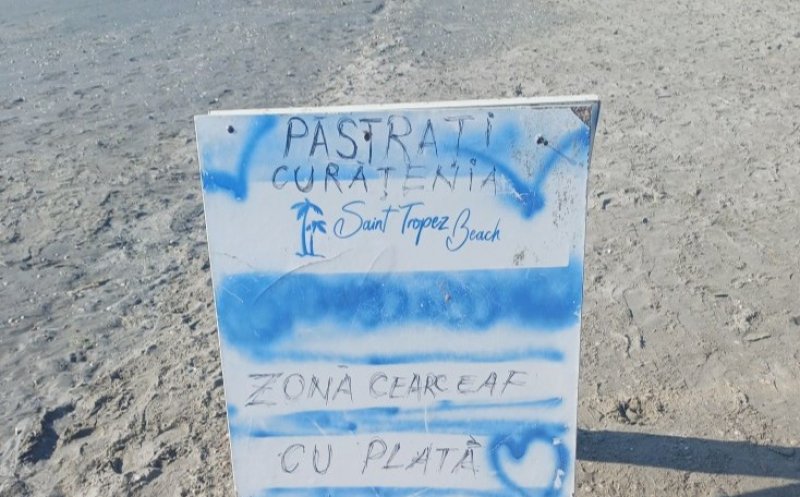 PĂSTRAȚI
CURĂȚENIA
Saint Tropez Beach
ZONĂ CEARCEAF
CU PLATĂ